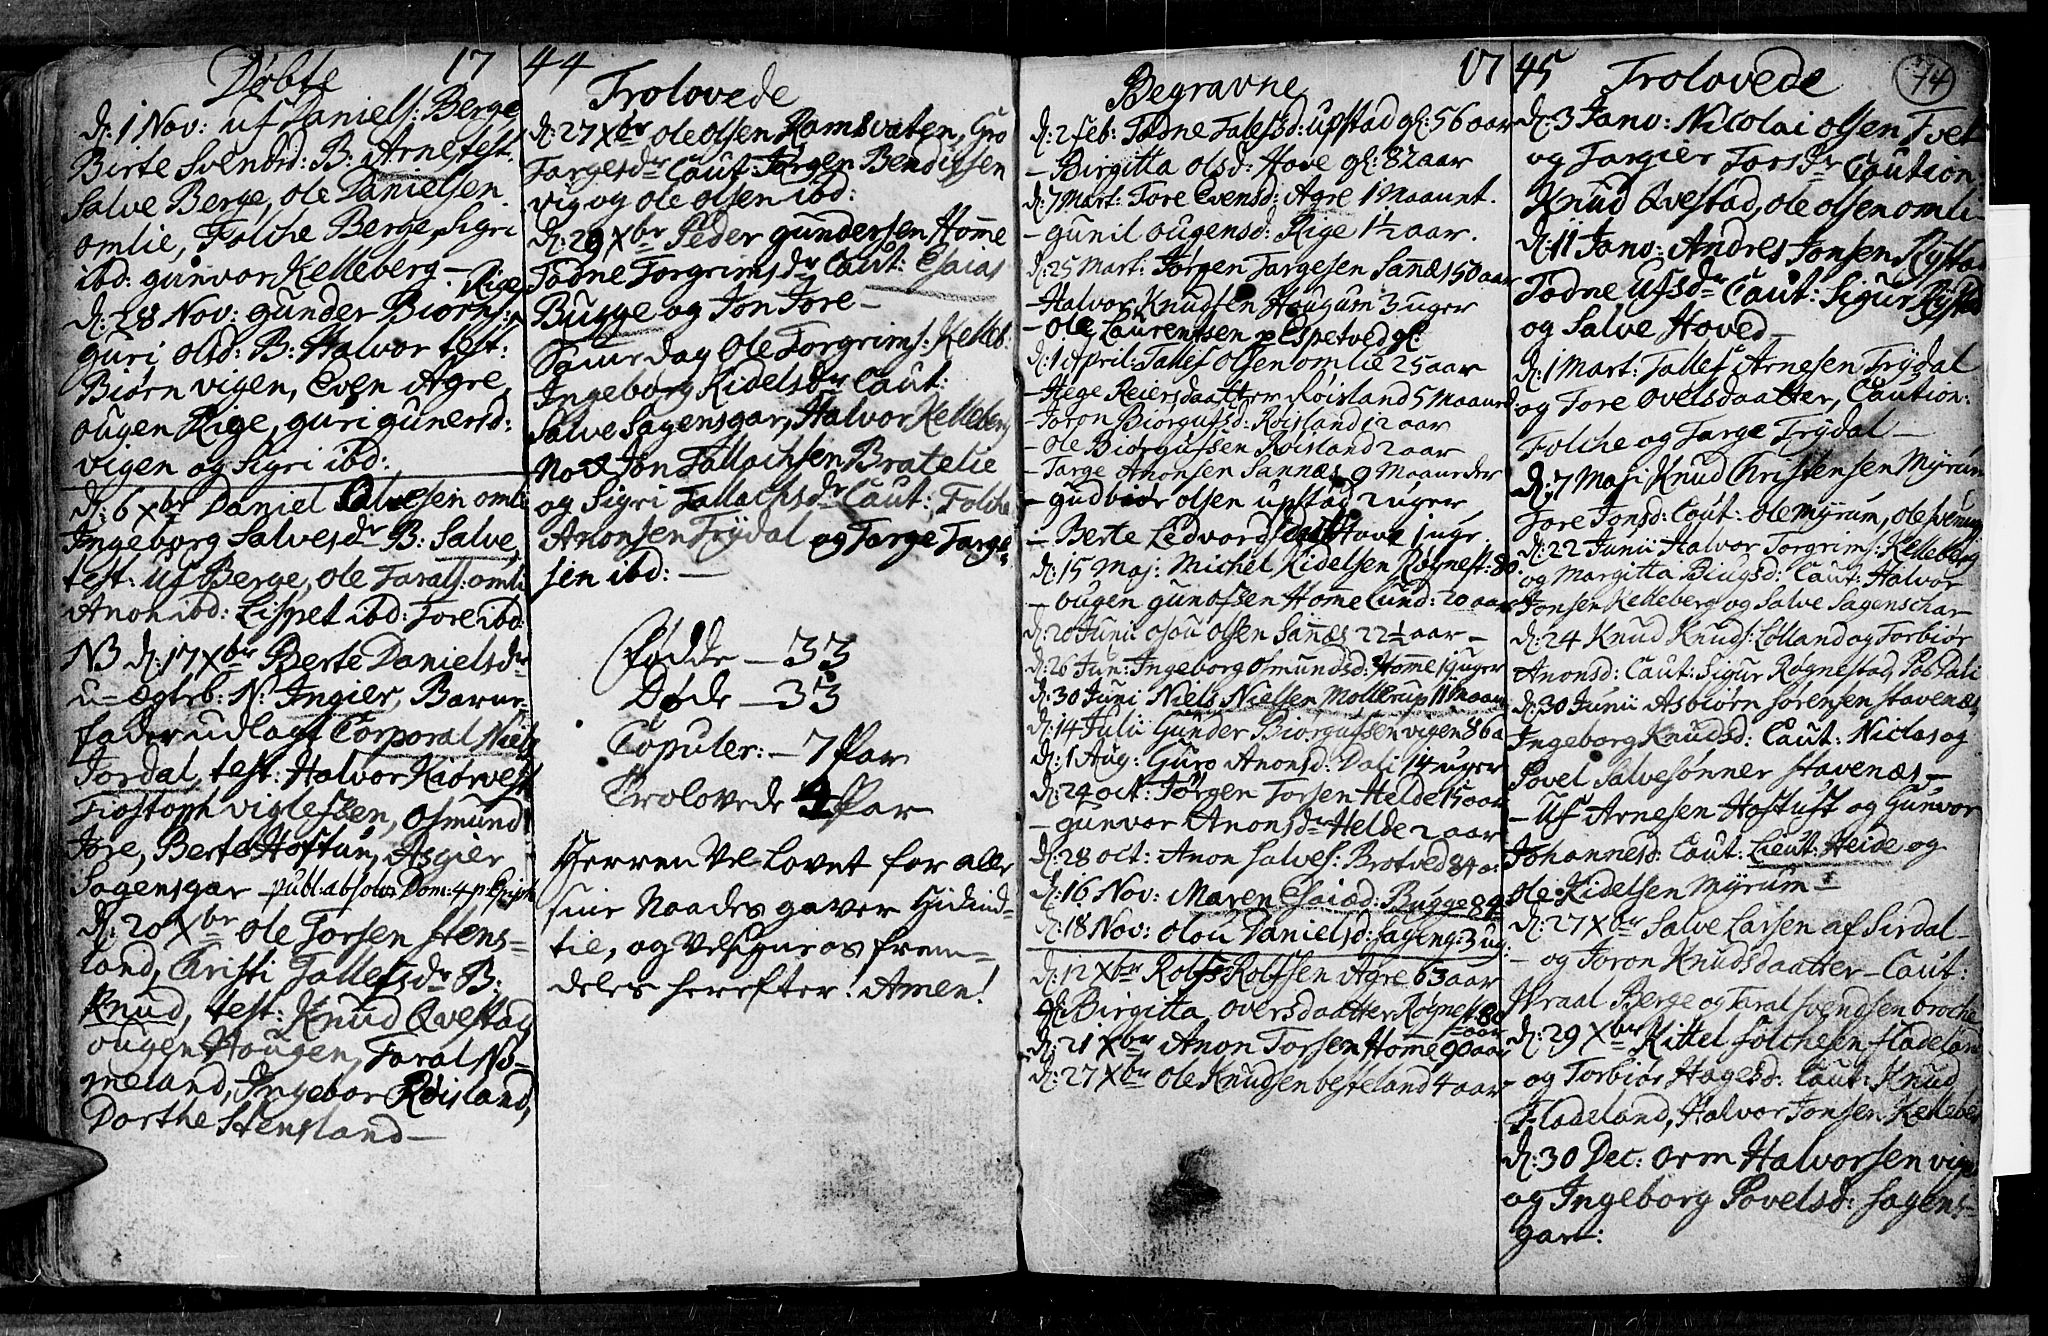 Døbte 17
d: 1 Nov: Uf Daniels: Berge
Birte Svendsd: B: Arne test.
Salve Berge, Ole Danielsen
omlie, Folche Berge, Sigri
ibd: gunvor Kelleberg —
d: 28 Nov: gunder Biørns: Riges
guri olsd: B: Halvor test:
Biørn vigen, Even Agre,
ougen Rige, guri gunersd:
vigen og Sigri ibd:
d: 6 Xbr Daniel Salvesen omli
Ingeborg Salvesdr B: Salve,
test: Uf Berge, Ole Taralls: omli
Anon ibd: Lisspet ibd: Tore ibd:
NB d: 17 Xbr Berte Danielsdr
u-ægteb: N: Ingier, Barne-
fader udlagt Corporal Niels
Jordal, test: Halvor
Viglefsen, Osmund
Jore, Berte Hoftun, Asgier
Sagensgar publ. absolv: Dom: 4 p. Epiph
d: 20 Xbr Ole Torsen Hens-
land, Christi Tallefsdr B:
Knud, test: Knud Qvestad,
ougen Haugen, Taral No-
meland, Ingebor Røisland,
Dorthe Hensland —
44
Trolovede
d: 27 Xbr Ole Olsen Ramsvaten, Gro
Targesdr Caut: Jørgen Bendixsen
vig og Ole Olsen ibd:
d: 29 Xbr Peder gundersen Homme
Todne Torgrimsdr Caut: Esaias
Bugge og Jon Jore —
Samme dag Ole Torgrims: Kelleb:
Ingeborg Kidelsdr Caut:
Salve Sagensgar, Halvor Kelleberg
Noch Jon Tallachsen Bratelie
og Sigri Tallachsdr Caut: Folche
Anonsen Trydal og Targe Targe-
sen ibd: —
Fødde — 33
Døde — 33
Copuler: — 7 Par
Trolovede 4 Par
Herren være Lovet for alle
sine Naades gaver hidind-
til, og velsigne os frem-
deles herefter! Amen!
Begravne 17
d: 2 Feb: Todne Talefsd: upstad gl: 56 aar
— Birgitta olsd: Hove gl: 82 aar
d: 7 Mart: Tore Evensd: Agre 1 Maanet.
— gunil ougensd: Rige 1½ aar.
d: 25 Mart: Jørgen Targesen Sannes 50 aar
— Halvor Knudsen Hougum 3 uger
— Ole Laurentsen Espetved gl:
d: 1 April: Tallef Olsen omlie 25 aar
— Hege Reiersdaatter Røisland 5 Maaned
— Joron Biorgufsd: Røisland 12 aar
— Ole Biorgufsen Røisland 2 aar
— Targe Anonsen Sannes 9 Maaneder
— gudvor olsen upstad 2 uger
— Berte Hove 1 ugr.
d: 15 Maj: Michel Kidelsen Røgnest: 80.
— ougen gunolfsen Homme Lund: 20 aar
d: 20 Junii Osou Olsen Sannes 22½ aar —
d: 26 Jun: Ingeborg Osmundsd: Homme 19 uger
d: 30 Juni Niels Nielsen Mollerup 11 Maan
d: 14 Julii Gunder Biorgufsen vigen 86 a
d: 1 Aug: Guro Anonsd: Dali 14 uger
d: 24 oct: Jørgen Torsen Helde 15 aar
— gunvor Anonsdr Helde 2 aar
d: 28 oct: Anon Salves: Brotved 84 a:
d: 16 Nov: Maren Esaiæd: Bugge
d: 18 Nov: Olou Danielsd: sageng: 3 ug:
d: 12 Xbr Rolfs: Rolfsen Agre 63 aar
d: Birgitta oversdaatter Røgnest 80 aar
d: 21 Xbr Anon Torsen Homme 90 aar
d: 27 Xbr Ole Knudsen beseland 4 aar
45 Trolovede 74
d: 3 Janv: Nicolai Olsen Tvet
og Targier Torsdr Caution
Knud Qvestad, Ole Olsen omli
d: 11 Janv: Andres Jonsen Rystad
Todne Ufsdr Caut: Sigur Rysted
og Salve Hoved —
d: 1 Mart: Tallef Arnesen Trydal
og Tore Ovelsdaatter, Caution:
Folche og Targe Trydal —
d: 7 Maji Knud Christensen Myrum
Tore Jonsd: Caut: Ole Myrum, Ole
d: 22 Junii Halvor Torgrims: Kelleberg
og Margitta Biugsd: Caut: Halvor
Jonsen Kelleberg og Salve Sagenschar
d: 24 Knud Knuds: Lolland og Torbiør
Anonsd: Caut: Sigur Røgnestad, Pol Dali
d: 30 Junii Asbiørn Sørensen stavenæs
Ingeborg Knudsd: Caut: Niclas og
Povel Salvesønner stavenæs —
— Uf Arnesen Hoftuft og Gunvor
Johannesd: Caut: Lieut: Heide og
Ole Kidelsen Myrum —
d: 27 Xbr Salve Larsen af Sirdal
— og Joron Knudsdaatter — Caut:
Berge og Taral Svendsen broche
d: 29 Xbr Kittel Folchesen fladeland
— og Torbiør Hagesd: Caut: Knud
Fladeland, Halvor Jonsen Kelleber
d: 30 Dec: Orm Halvorsen vigen
og Ingeborg Povelsd: sagens-
gart: